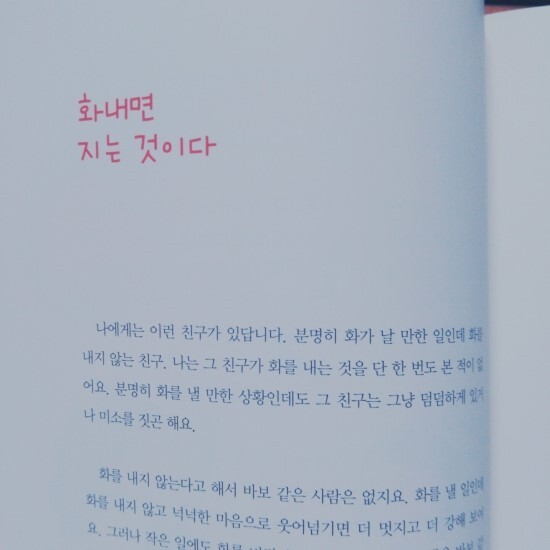 화내면
지는 것이다
나에게는 이런 친구가 있답니다. 분명히 화가 날 만한 일인데 화를
내지 않는 친구. 나는 그 친구가 화를 내는 것을 단 한 번도 본 적이 없
어요. 분명히 화를 낼 만한 상황인데도 그 친구는 그냥 덤덤하게 있거
나 미소를 짓곤 해요.
화를 내지 않는다고 해서 바보 같은 사람은 없지요. 화를 낼 일인데
화를 내지 않고 넉넉한 마음으로 웃어넘기면 더 멋지고 더 강해 보여
요. 그러나 작은 일에도 화를